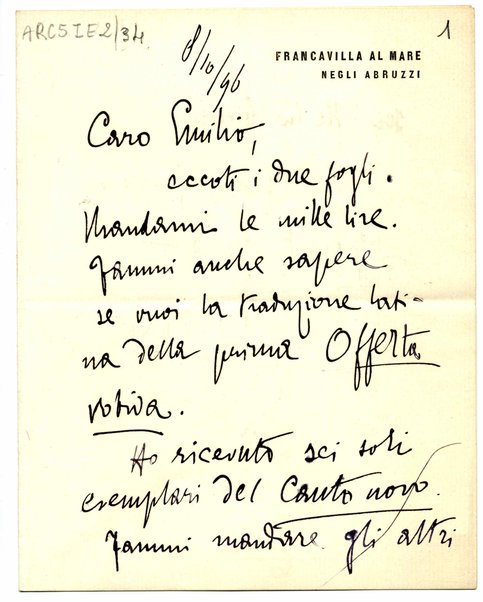 ARC5IE2/34
1
8/10/96
FRANCAVILLA AL MARE
NEGLI ABRUZZI
Caro Emilio,
eccoti i due fogli.
Mandami le mille lire.
Fammi anche sapere
se vuoi la traduzione lati-
na della prima Offerta
votiva.
Ho ricevuto sei soli
esemplari del Canto novo.
Fammi mandare gli altri